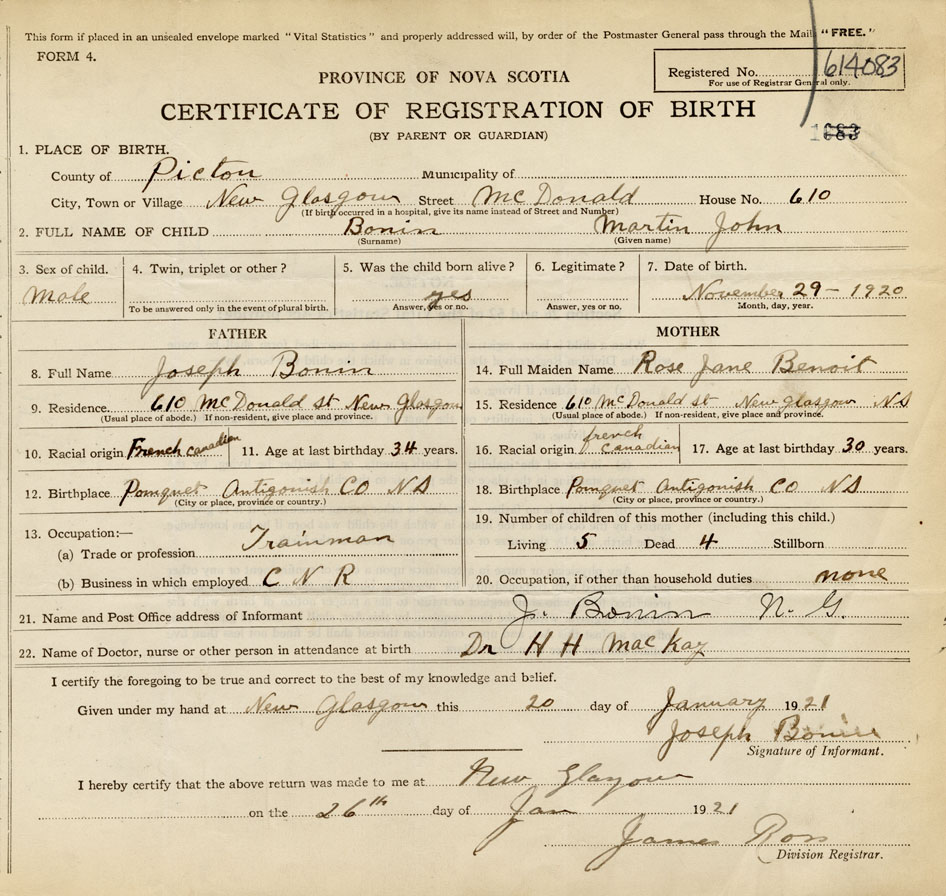 This form if placed in an unsealed envelope marked "Vital Statistics" and properly addressed will, by order of the Postmaster General pass through the Mail "FREE."
FORM 4.
Registered No. 614083
For use of Registrar General only.
PROVINCE OF NOVA SCOTIA
CERTIFICATE OF REGISTRATION OF BIRTH
(BY PARENT OR GUARDIAN)
1. PLACE OF BIRTH.
County of Pictou Municipality of
City, Town or Village New Glasgow Street McDonald House No. 610
(If birth occurred in a hospital, give its name instead of Street and Number)
2. FULL NAME OF CHILD Bonin Martin John
(Surname) (Given name)
3. Sex of child. 4. Twin, triplet or other? 5. Was the child born alive? 6. Legitimate? 7. Date of birth.
Male yes November 29 - 1920
To be answered only in the event of plural birth. Answer, yes or no. Answer, yes or no. Month, day, year.
FATHER
8. Full Name Joseph Bonin
9. Residence. 610 McDonald st New Glasgow
(Usual place of abode.) If non-resident, give place and province.
10. Racial origin French canadian 11. Age at last birthday 34 years.
12. Birthplace Pomquet Antigonish CO NS
(City or place, province or country.)
13. Occupation:—
(a) Trade or profession Trainman
(b) Business in which employed C N R
MOTHER
14. Full Maiden Name Rose Jane Benoit
15. Residence 610 McDonald st New glasgow NS
(Usual place of abode.) If non-resident, give place and province.
16. Racial origin french canadian 17. Age at last birthday 30 years.
18. Birthplace Pomquet Antigonish CO NS
(City or place, province or country.)
19. Number of children of this mother (including this child.)
Living 5 Dead 4 Stillborn
20. Occupation, if other than household duties none
21. Name and Post Office address of Informant J. Bonin N. G.
22. Name of Doctor, nurse or other person in attendance at birth Dr H H MacKay
I certify the foregoing to be true and correct to the best of my knowledge and belief.
Given under my hand at New Glasgow this 20 day of January 1921
Joseph Bonin
Signature of Informant.
I hereby certify that the above return was made to me at New Glasgow
on the 26th day of Jan 1921
James Ross
Division Registrar.